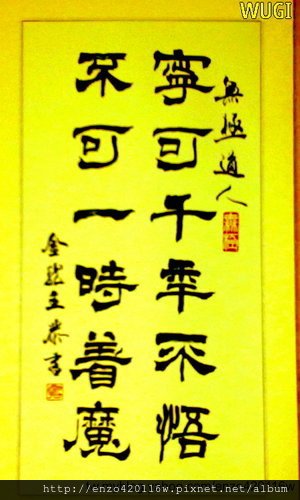 WUGI
無極道人
寧可千年不悟
不可一時着魔
金龍主恭書
http://enzo420116w.pixnet.net/album